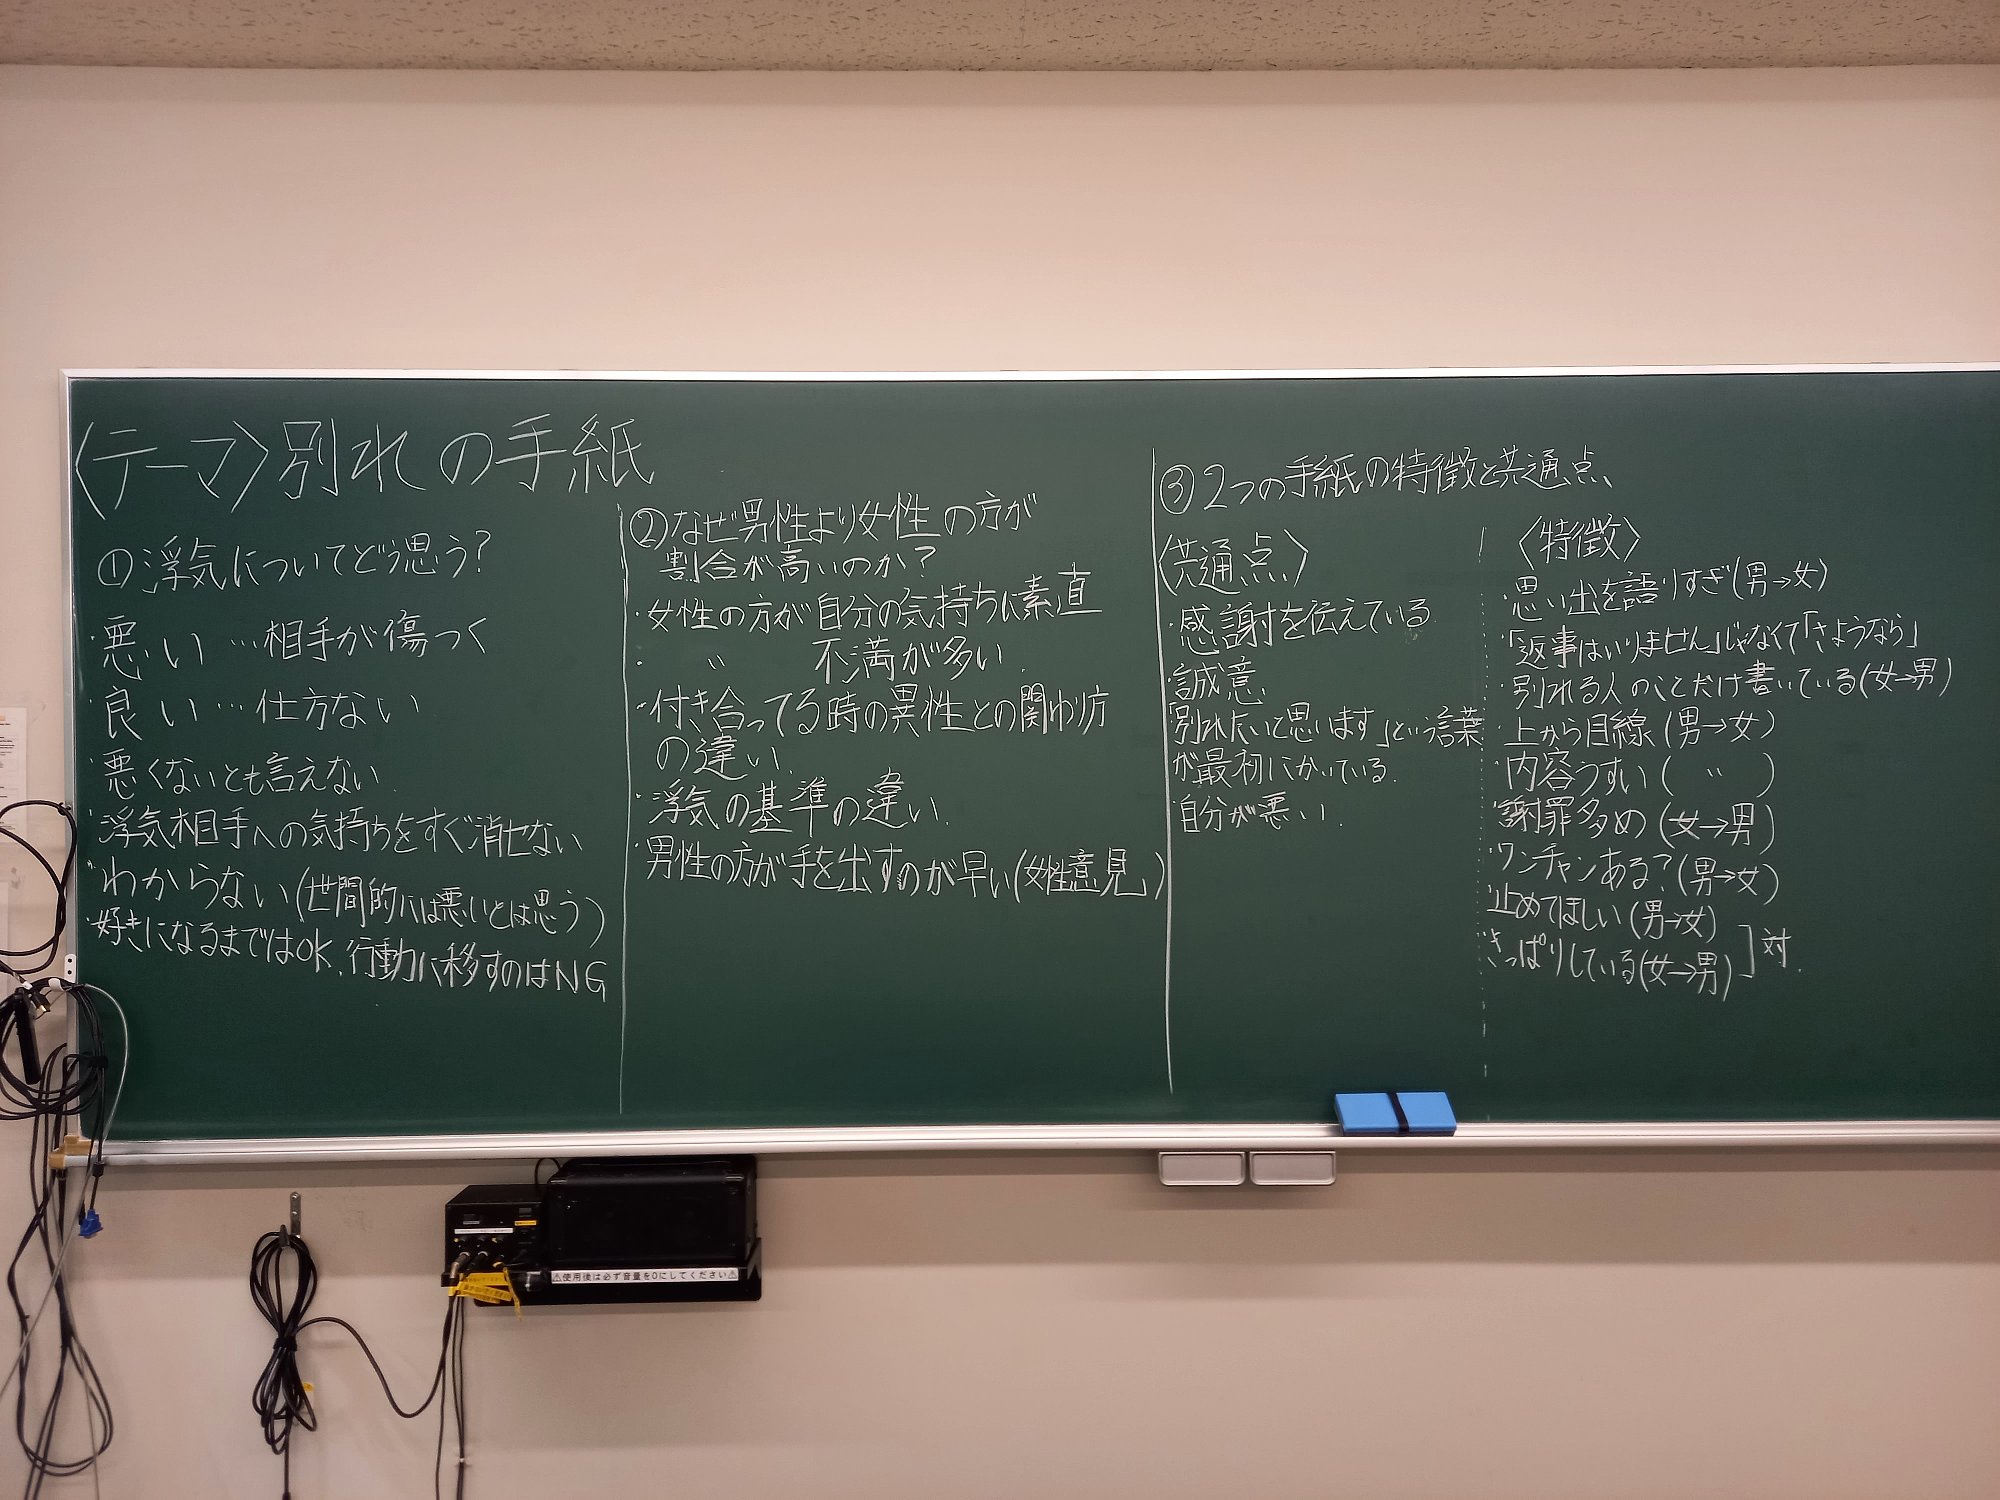 〈テーマ〉別れの手紙
①浮気についてどう思う?
・悪い…相手が傷つく
・良い…仕方ない
・悪くないとも言えない
・浮気相手への気持ちをすぐ消せない
・わからない(世間的には悪いとは思う)
・好きになるまではOK、行動に移すのはNG
②なぜ男性より女性の方が
割合が高いのか?
・女性の方が自分の気持ちに素直
・〃 不満が多い
・付き合ってる時の異性との関わり方
の違い
・浮気の基準の違い
・男性の方が手を出すのが早い(女性意見)
③2つの手紙の特徴と共通点
〈共通点〉
・感謝を伝えている
・誠意
・「別れたいと思います」という言葉
が最初にかいている
・自分が悪い
〈特徴〉
・思い出を語りすぎ(男→女)
・「返事はいりません」じゃなくて「さようなら」
・別れる人のことだけ書いている(女→男)
・上から目線(男→女)
・内容うすい(〃)
・謝罪多め(女→男)
・ワンチャンある?(男→女)
・止めてほしい(男→女)
・きっぱりしている(女→男)
対
⚠使用後は必ず音量を0にしてください⚠